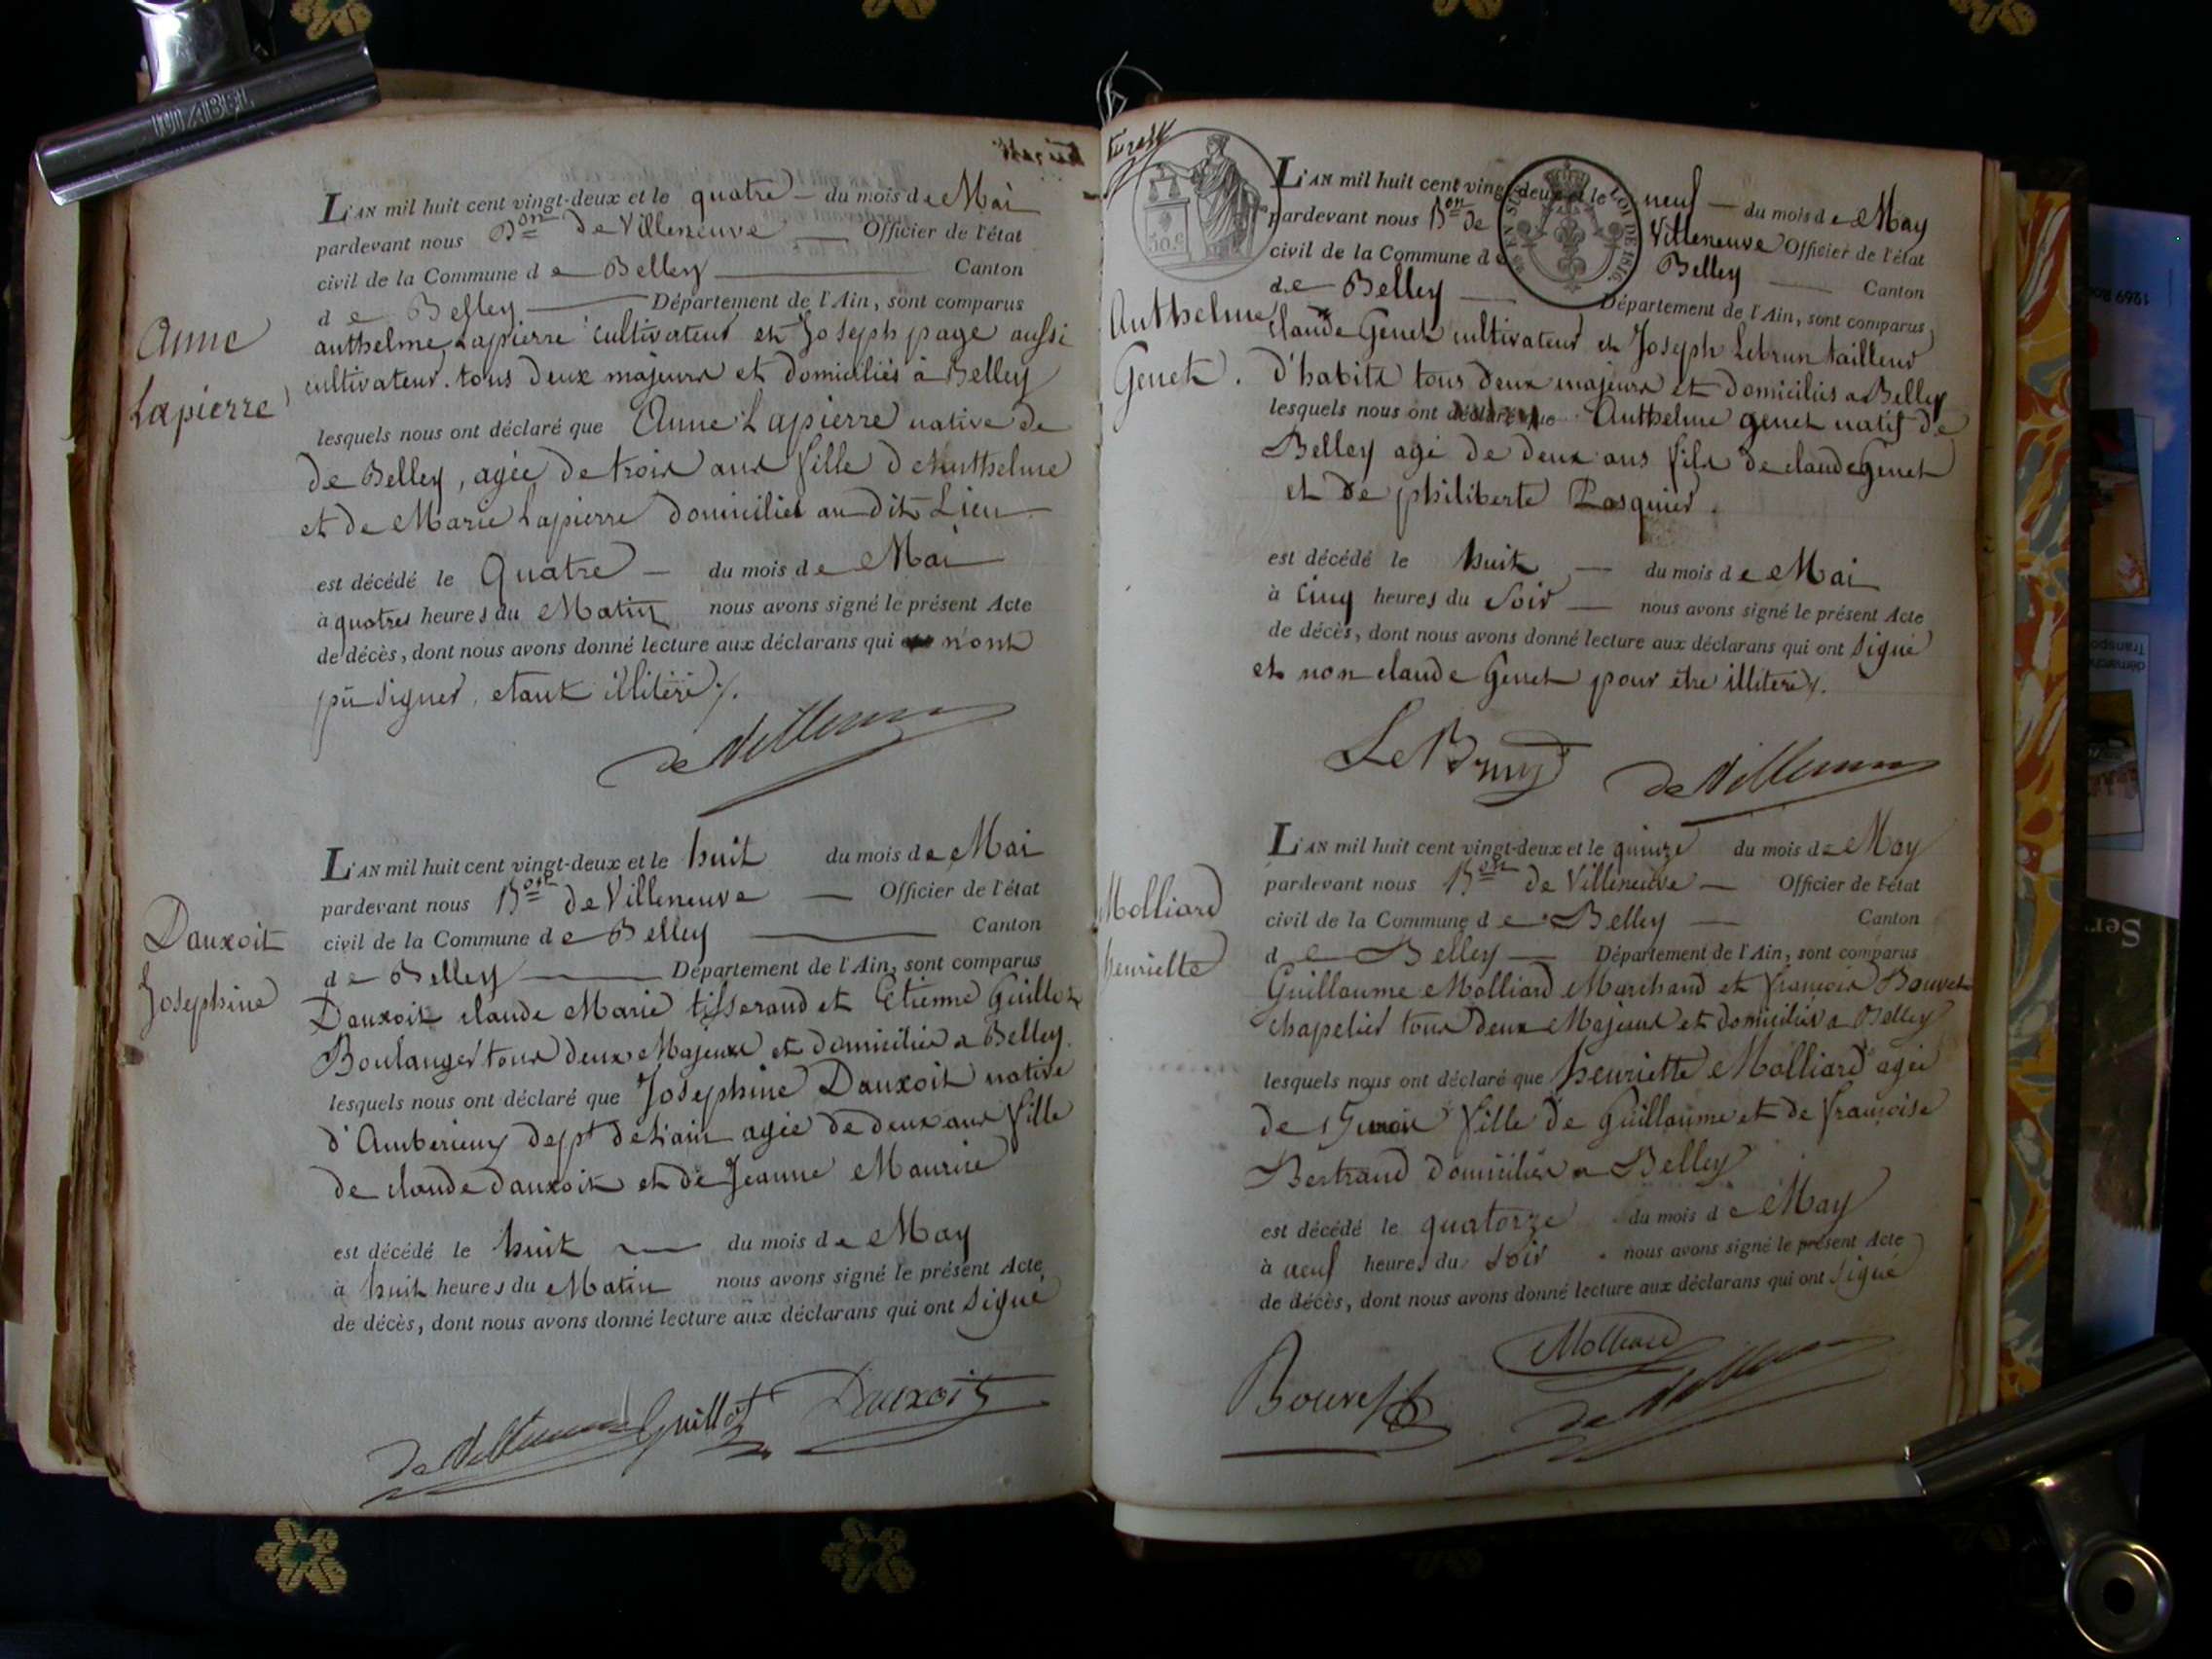 L'AN mil huit cent vingt-deux et le quatre — du mois de Mai
pardevant nous Bon de Villeneuve — Officier de l'état
civil de la Commune de Belley — Canton
de Belley — Département de l'Ain, sont comparus
Anne
Lapierre
anthelme Lapierre cultivateur et Joseph page aussi
cultivateur. tous deux majeurs et domiciliés à Belley
lesquels nous ont déclaré que Anne Lapierre native de
de Belley, agée de trois ans fille d'Anthelme
et de Marie Lapierre domiciliés au dit Lieu
est décédé le Quatre — du mois de Mai
à quatres heures du Matin nous avons signé le présent Acte
de décès, dont nous avons donné lecture aux déclarans qui n'ont
pû signer, etant illitéré ./.
de Villeneuve
L'AN mil huit cent vingt-deux et le huit du mois de Mai
pardevant nous Bon de Villeneuve — Officier de l'état
civil de la Commune de Belley — Canton
de Belley — Département de l'Ain, sont comparus
Dauxoit
Josephine
Dauxoit claude Marie tisserand et Etienne Guillot
Boulanger tous deux Majeurs et domiciliés a Belley.
lesquels nous ont déclaré que Josephine Dauxoit native
d'Amberieux dept de L'ain agée de deux ans fille
de claude dauxoit et de Jeanne Maurice
est décédé le huit — du mois de May
à huit heures du Matin nous avons signé le présent Acte
de décès, dont nous avons donné lecture aux déclarans qui ont Signé
de Villeneuve Guillot Dauxoit
50 c.
EN SUS LOI DE 1816.
L'AN mil huit cent vingt-deux et le neuf — du mois de May
pardevant nous Bon de Villeneuve Officier de l'état
civil de la Commune de Belley — Canton
de Belley — Département de l'Ain, sont comparus
Anthelme
Genet.
claude Genet cultivateur et Joseph Lebrun tailleur
d'habits tous deux majeurs et domiciliés a Belley
lesquels nous ont déclaré que Anthelme genet natif de
Belley agé de deux ans fils de claude Genet
et de philiberte Pasquier.
est décédé le huit — du mois de Mai
à Cinq heures du Soir — nous avons signé le présent Acte
de décès, dont nous avons donné lecture aux déclarans qui ont Signé
et non claude Genet pour être illiteré ./.
LeBrun de Villeneuve
L'AN mil huit cent vingt-deux et le quinze du mois de May
pardevant nous Bon de Villeneuve — Officier de l'état
civil de la Commune de Belley — Canton
de Belley — Département de l'Ain, sont comparus
Molliard
henriette
Guillaume Molliard Marchand et françois Bouvet
chapelier tous deux Majeurs et domiciliés a Belley
lesquels nous ont déclaré que henriette Molliard agée
de mois fille de Guillaume et de françoise
Bertrand domiciliés a Belley
est décédé le quatorze du mois de May
à neuf heures du Soir nous avons signé le présent Acte
de décès, dont nous avons donné lecture aux déclarans qui ont Signé
Molliard
Bouvet de Villeneuve